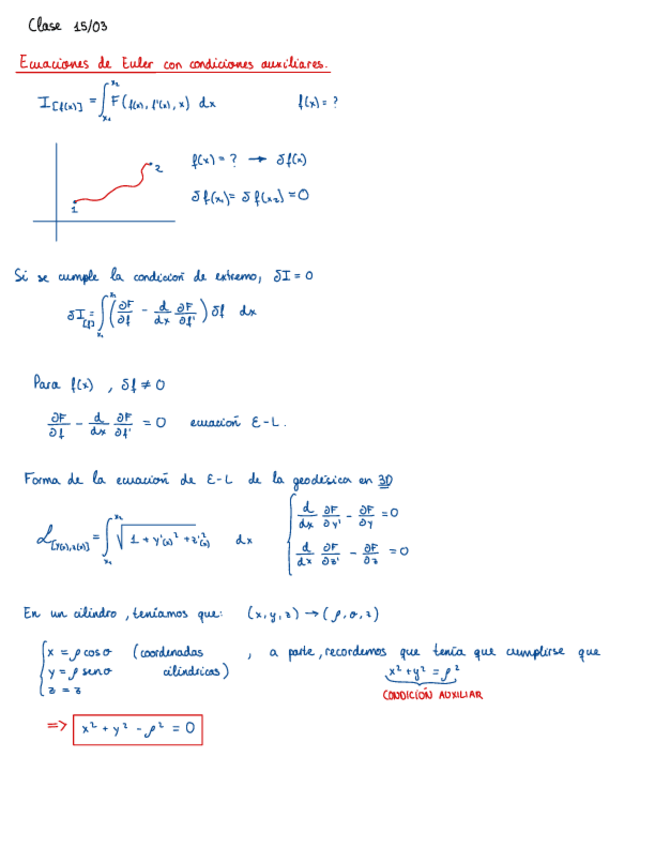 Clase 15/03
Ecuaciones de Euler con condiciones auxiliares.
I[f(x)] = ∫_{x₁}^{x₂} F(f(x), f'(x), x) dx   f(x) = ?
f(x) = ? → δf(x)
2
1
δf(x₁) = δf(x₂) = 0
Si se cumple la condición de extremo, δI = 0
δI[f] = ∫_{x₁}^{x₂} (∂F/∂f - d/dx ∂F/∂f') δf dx
Para f(x), δf ≠ 0
∂F/∂f - d/dx ∂F/∂f' = 0   ecuación E-L.
Forma de la ecuación de E-L de la geodésica en 3D
L[y(x), z(x)] = ∫_{x₁}^{x₂} √(1 + y'(x)² + z'(x)²) dx
d/dx ∂F/∂y' - ∂F/∂y = 0
d/dx ∂F/∂z' - ∂F/∂z = 0
En un cilindro, teníamos que: (x, y, z) → (ρ, θ, z)
x = ρ cosθ (coordenadas , a parte, recordemos que tenía que cumplirse que
y = ρ senθ cilíndricas) x² + y² = ρ²
z = z
CONDICIÓN AUXILIAR
=> x² + y² - ρ² = 0